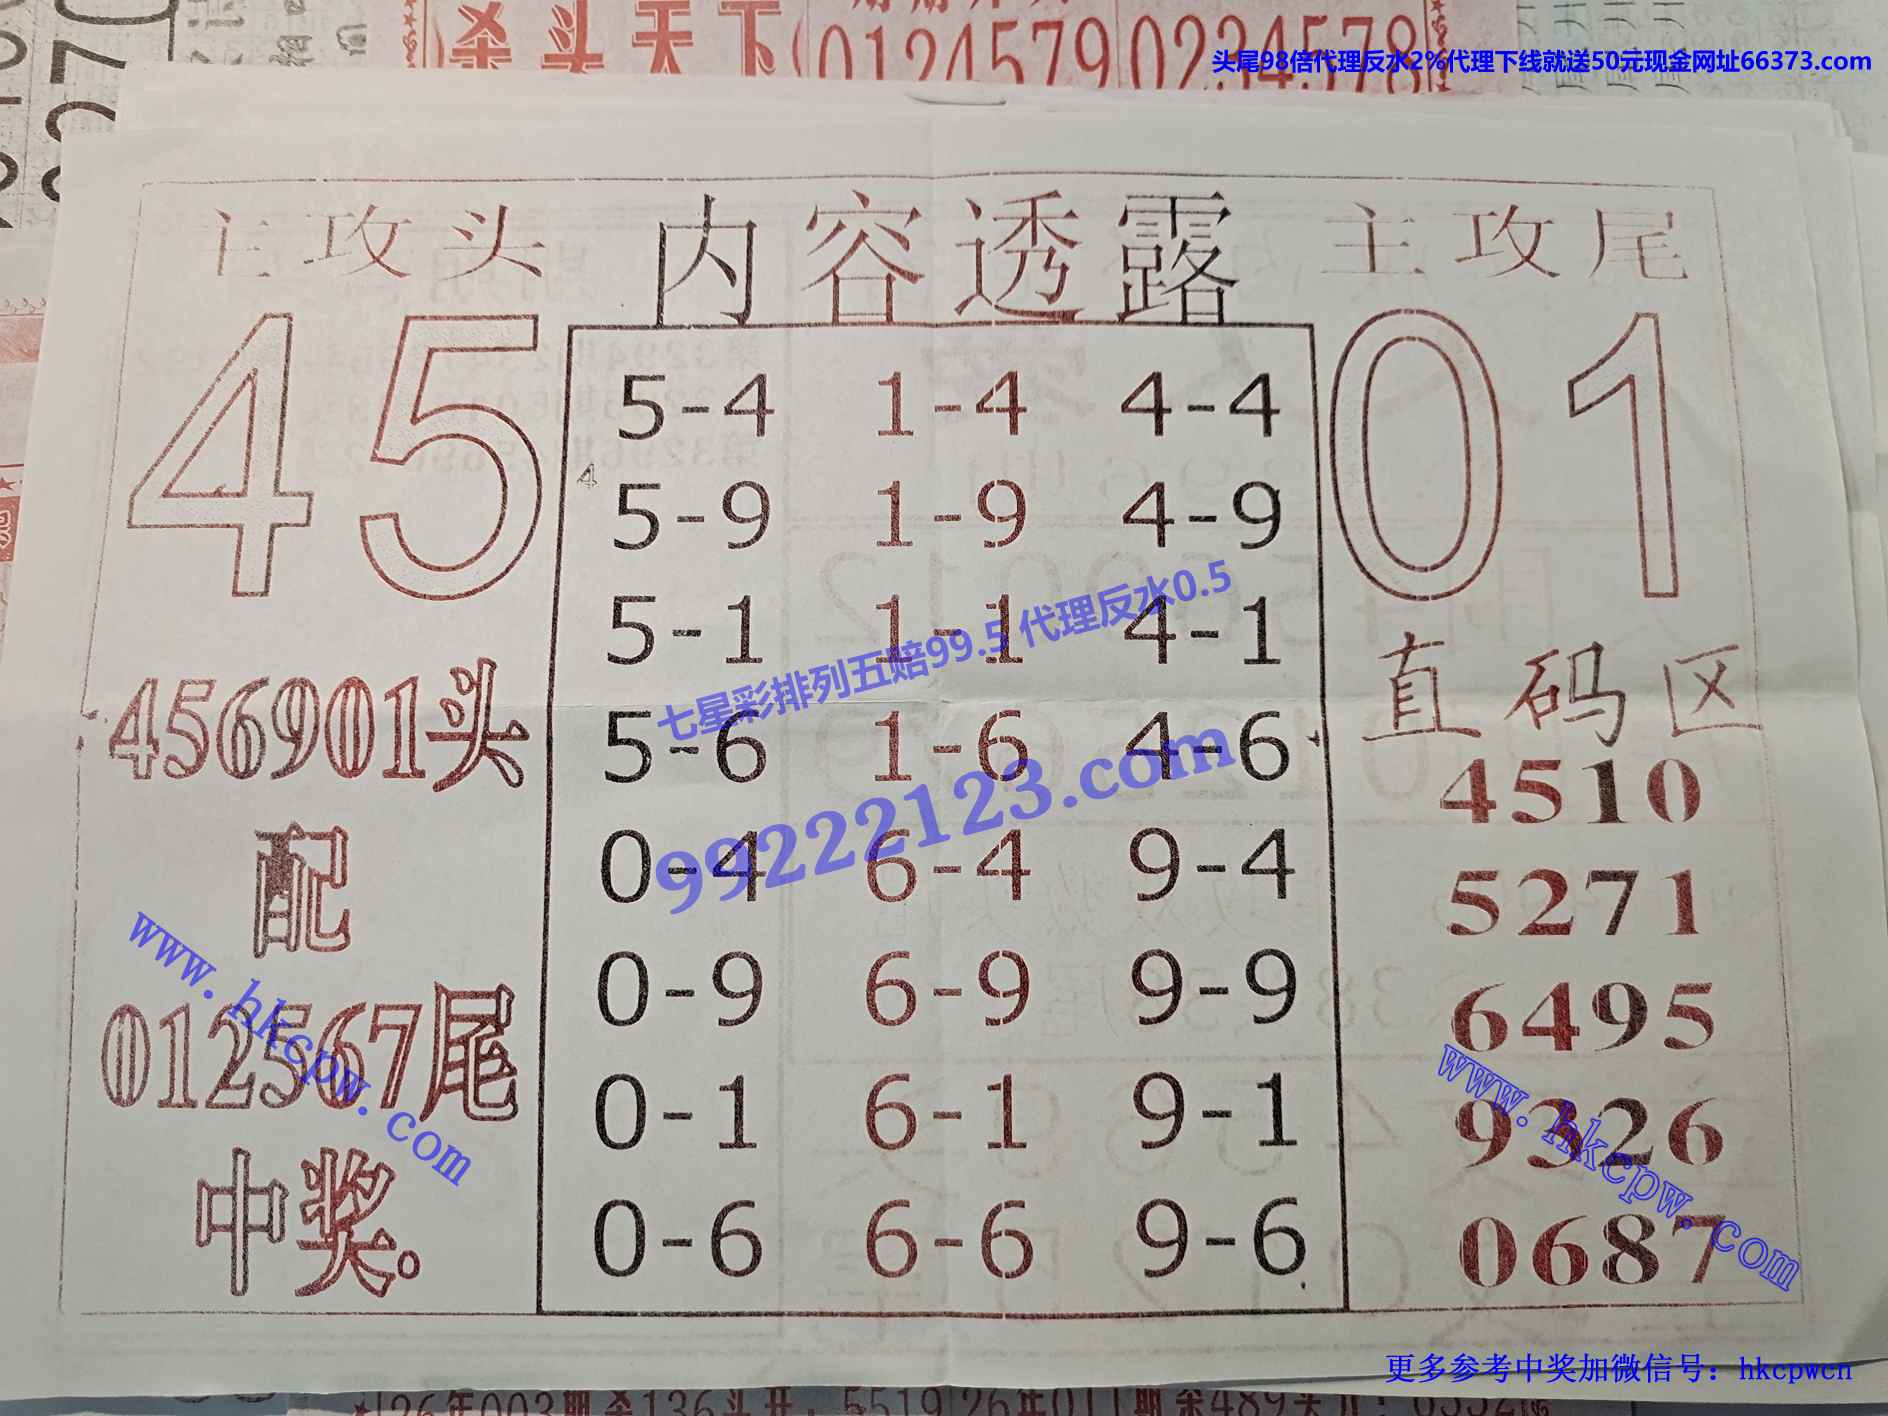 杀头天下
0124579 0234578
头尾98倍代理反水2%代理下线就送50元现金网址66373.com
内容透露
主攻头
45
456901头
配
012567尾
中奖。
5-4 1-4 4-4
4
5-9 1-9 4-9
5-1 1-1 4-1
5-6 1-6 4-6
0-4 6-4 9-4
0-9 6-9 9-9
0-1 6-1 9-1
0-6 6-6 9-6
主攻尾
01
直码区
4510
5271
6495
9326
0687
七星彩排列五赔99.5 代理反水0.5
99222123.com
www.hkcpw.com
www.hkcpw.com
更多参考中奖加微信号：hkcpwcn
26年003期杀136头开：5519 26年011期杀489头开：